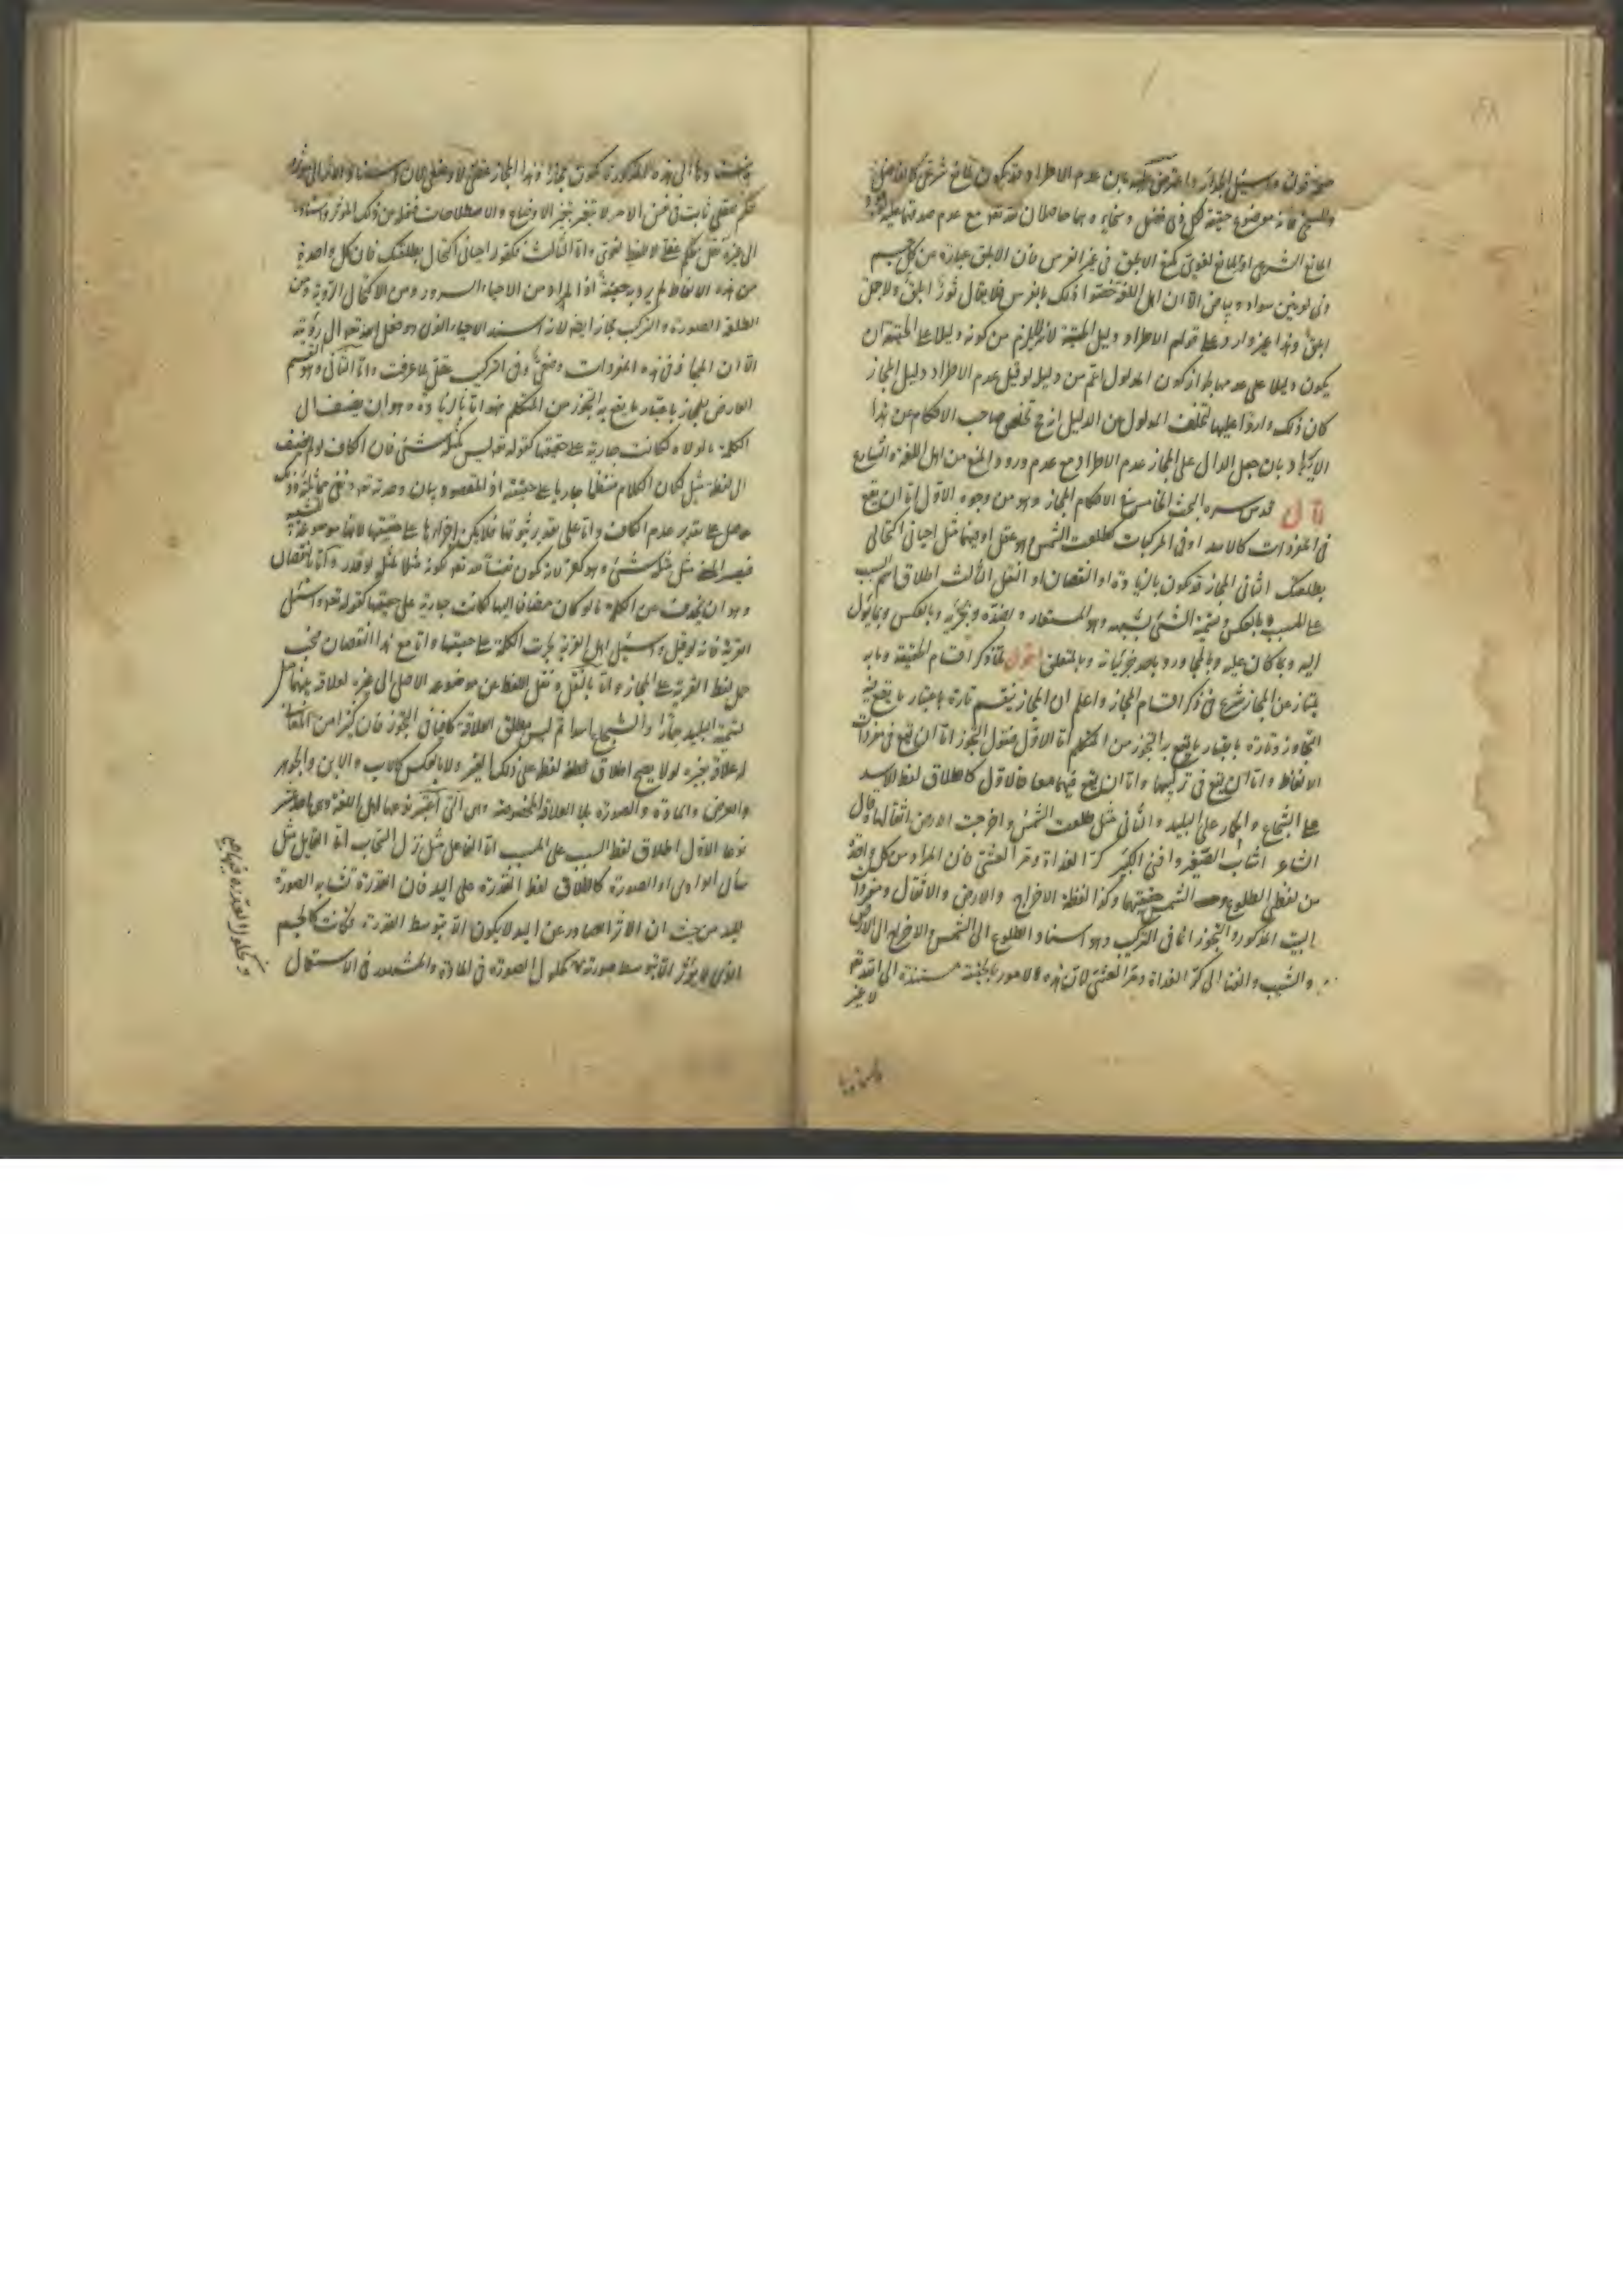 صحة قولنا واسئل الجدار واعترض عليه بان عدم الاطراد قد يكون لمانع شرعي كالفاضل
والسخي فانه موضوع حقيقة لكل ذي فضل وسخاء وهما حاصلان لله تعالى مع عدم صدقهما عليه
المانع الشرعي او لمانع لغوي كمنع الابلق في غير الفرس فان الابلق عبارة من كل جسم
ذي لونين سواد وبياض الا ان اهل اللغة خصوا ذلك بالفرس فلا يقال ثور ابلق ولا جمل
ابلق وهذا غير وارد على قولهم الاطراد دليل الحقيقة لانه لا يلزم من كونه دليلا على الحقيقة ان
يكون دليلا على عدمها لجواز كون المدلول اعم من دليل لو قيل عدم الاطراد دليل المجاز
كان ذلك واردا عليها لتخلف المدلول عن الدليل اذ تخلص صاحب الاحكام عن هذا
الايراد بان جعل الدال على المجاز عدم الاطراد مع عدم ورود المنع من اهل اللغة والشارع
قال قدس سره البحث الخامس في احكام المجاز وهو من وجوه الاول اما ان يقع
في المفردات كالاسد او في المركبات كطلعت الشمس وهو عقلي او فيهما مثل احياني اكتحالي
بطلعتك الثاني المجاز قد يكون بالزيادة او النقصان او النقل الثالث اطلاق اسم السبب
على المسبب وبالعكس وتسمية الشيء بشبهه وهو المستعار وبضده وبجزئه وبالعكس وبما يؤل
اليه وبما كان عليه وبالمجاور وباحد جزئياته وبالمتعلق اقول لما ذكر اقسام الحقيقة وما به
يمتاز عن المجاز شرع في ذكر اقسام المجاز واعلم ان المجاز ينقسم تارة باعتبار ما يقع فيه
التجاوز وتارة باعتبار ما يقع به التجوز من المتكلم اما الاول فنقول التجوز اما ان يقع في مفردات
الالفاظ واما ان يقع في تركيبها واما ان يقع فيهما معا فالاول كاطلاق لفظ الاسد
على الشجاع والحمار على البليد والثاني مثل طلعت الشمس واخرجت الارض اثقالها وقال
الشاعر اشاب الصغير وافنى الكبير كر الغداة ومر العشي فان المراد من كل واحد
من لفظي الطلوع والشمس حقيقتها وكذا لفظة الاخراج والارض والاثقال ومفردات
البيت المذكور والتجوز انما في التركيب وهو اسناد الطلوع الى الشمس والاخراج الى الارض
والشيب والفنا الى كر الغداة ومر العشي لان هذه الامور بالحقيقة مستندة الى الله تعالى
لا غير
فاسنادها الى هذه المذكورة يكون مجازا وهذا المجاز عقلي لا وضعي لان اسناد الاثر الى مؤثره
حكم عقلي ثابت في نفس الامر لا يتغير بتغير الاوضاع والاصطلاحات فنقله من ذلك المؤثر واسناده
الى غيره نقل لحكم عقلي لا للفظ لغوي واما الثالث فكقولك احياني اكتحالي بطلعتك فان كل واحدة
من هذه الالفاظ لم يرد به حقيقة اذ المراد من الاحياء السرور ومن الاكتحال الرؤية ومن
الطلعة الصورة والتركيب مجاز ايضا لانه اسند الاحياء الذي هو فعل الله تعالى الى رؤيته
الا ان المجاز في هذه المفردات وضعي وفي التركيب عقلي لما عرفت واما الثاني وهو القسم
العارض للمجاز باعتبار ما يقع به التجوز من المتكلم فهو اما بالزيادة وهو ان يضاف الى
الكلمة ما لولاه لكانت جارية على حقيقتها كقوله تعالى ليس كمثله شيء فان الكاف لو لم يضف
الى لفظة مثل لكان الكلام منتظما جاريا على حقيقته اذ المقصود بيان وحدته تعالى ونفي مماثلة وذلك
حاصل على تقدير عدم الكاف واما على تقدير ثبوتها فلا يمكن اجراؤها على حقيقتها لانها موضوعة للتشبيه
فيصير المعنى مثل مثله شيء وهو كفر لانه يكون نفيا له تعالى لكونه مثلا لمثل لو قدر واما بالنقصان
وهو ان يحذف من الكلمة ما لو كان مضافا اليها لكانت جارية على حقيقتها كقوله تعالى واسئل
القرية فانه لو قيل واسئل اهل القرية لجرت الكلمة على حقيقتها واما مع هذا النقصان فيجب
حمل لفظ القرية على المجاز واما بالنقل وهو نقل اللفظ عن موضوعه الاصلي الى غيره لعلاقة بينهما مثل
تسمية البليد حمارا والشجاع اسدا ثم ليس مطلق العلاقة كافيا في التجوز فان كثيرا من المعاني
له علاقة بغيره ولا يصح اطلاق لفظه على ذلك الغير ولا بالعكس كالاب والابن والجوهر
والعرض والمادة والصورة بل العلاقة المخصوصة وهي التي اعتبر نوعها اهل اللغة وهي احد عشر
نوعا الاول اطلاق لفظ السبب على المسبب اما الفاعل مثل نزل السحاب اما القابل مثل
سال الوادي او الصورة كاطلاق لفظ القدرة على اليد فان القدرة تشابه الصورة
لليد من حيث ان الاثر الصادر عن اليد لا يكون الا بتوسط القدرة فكانت كالجسم
الذي لا يؤثر الا بتوسط صورته كحلول الصورة في المادة والمشهور في الاستعمال